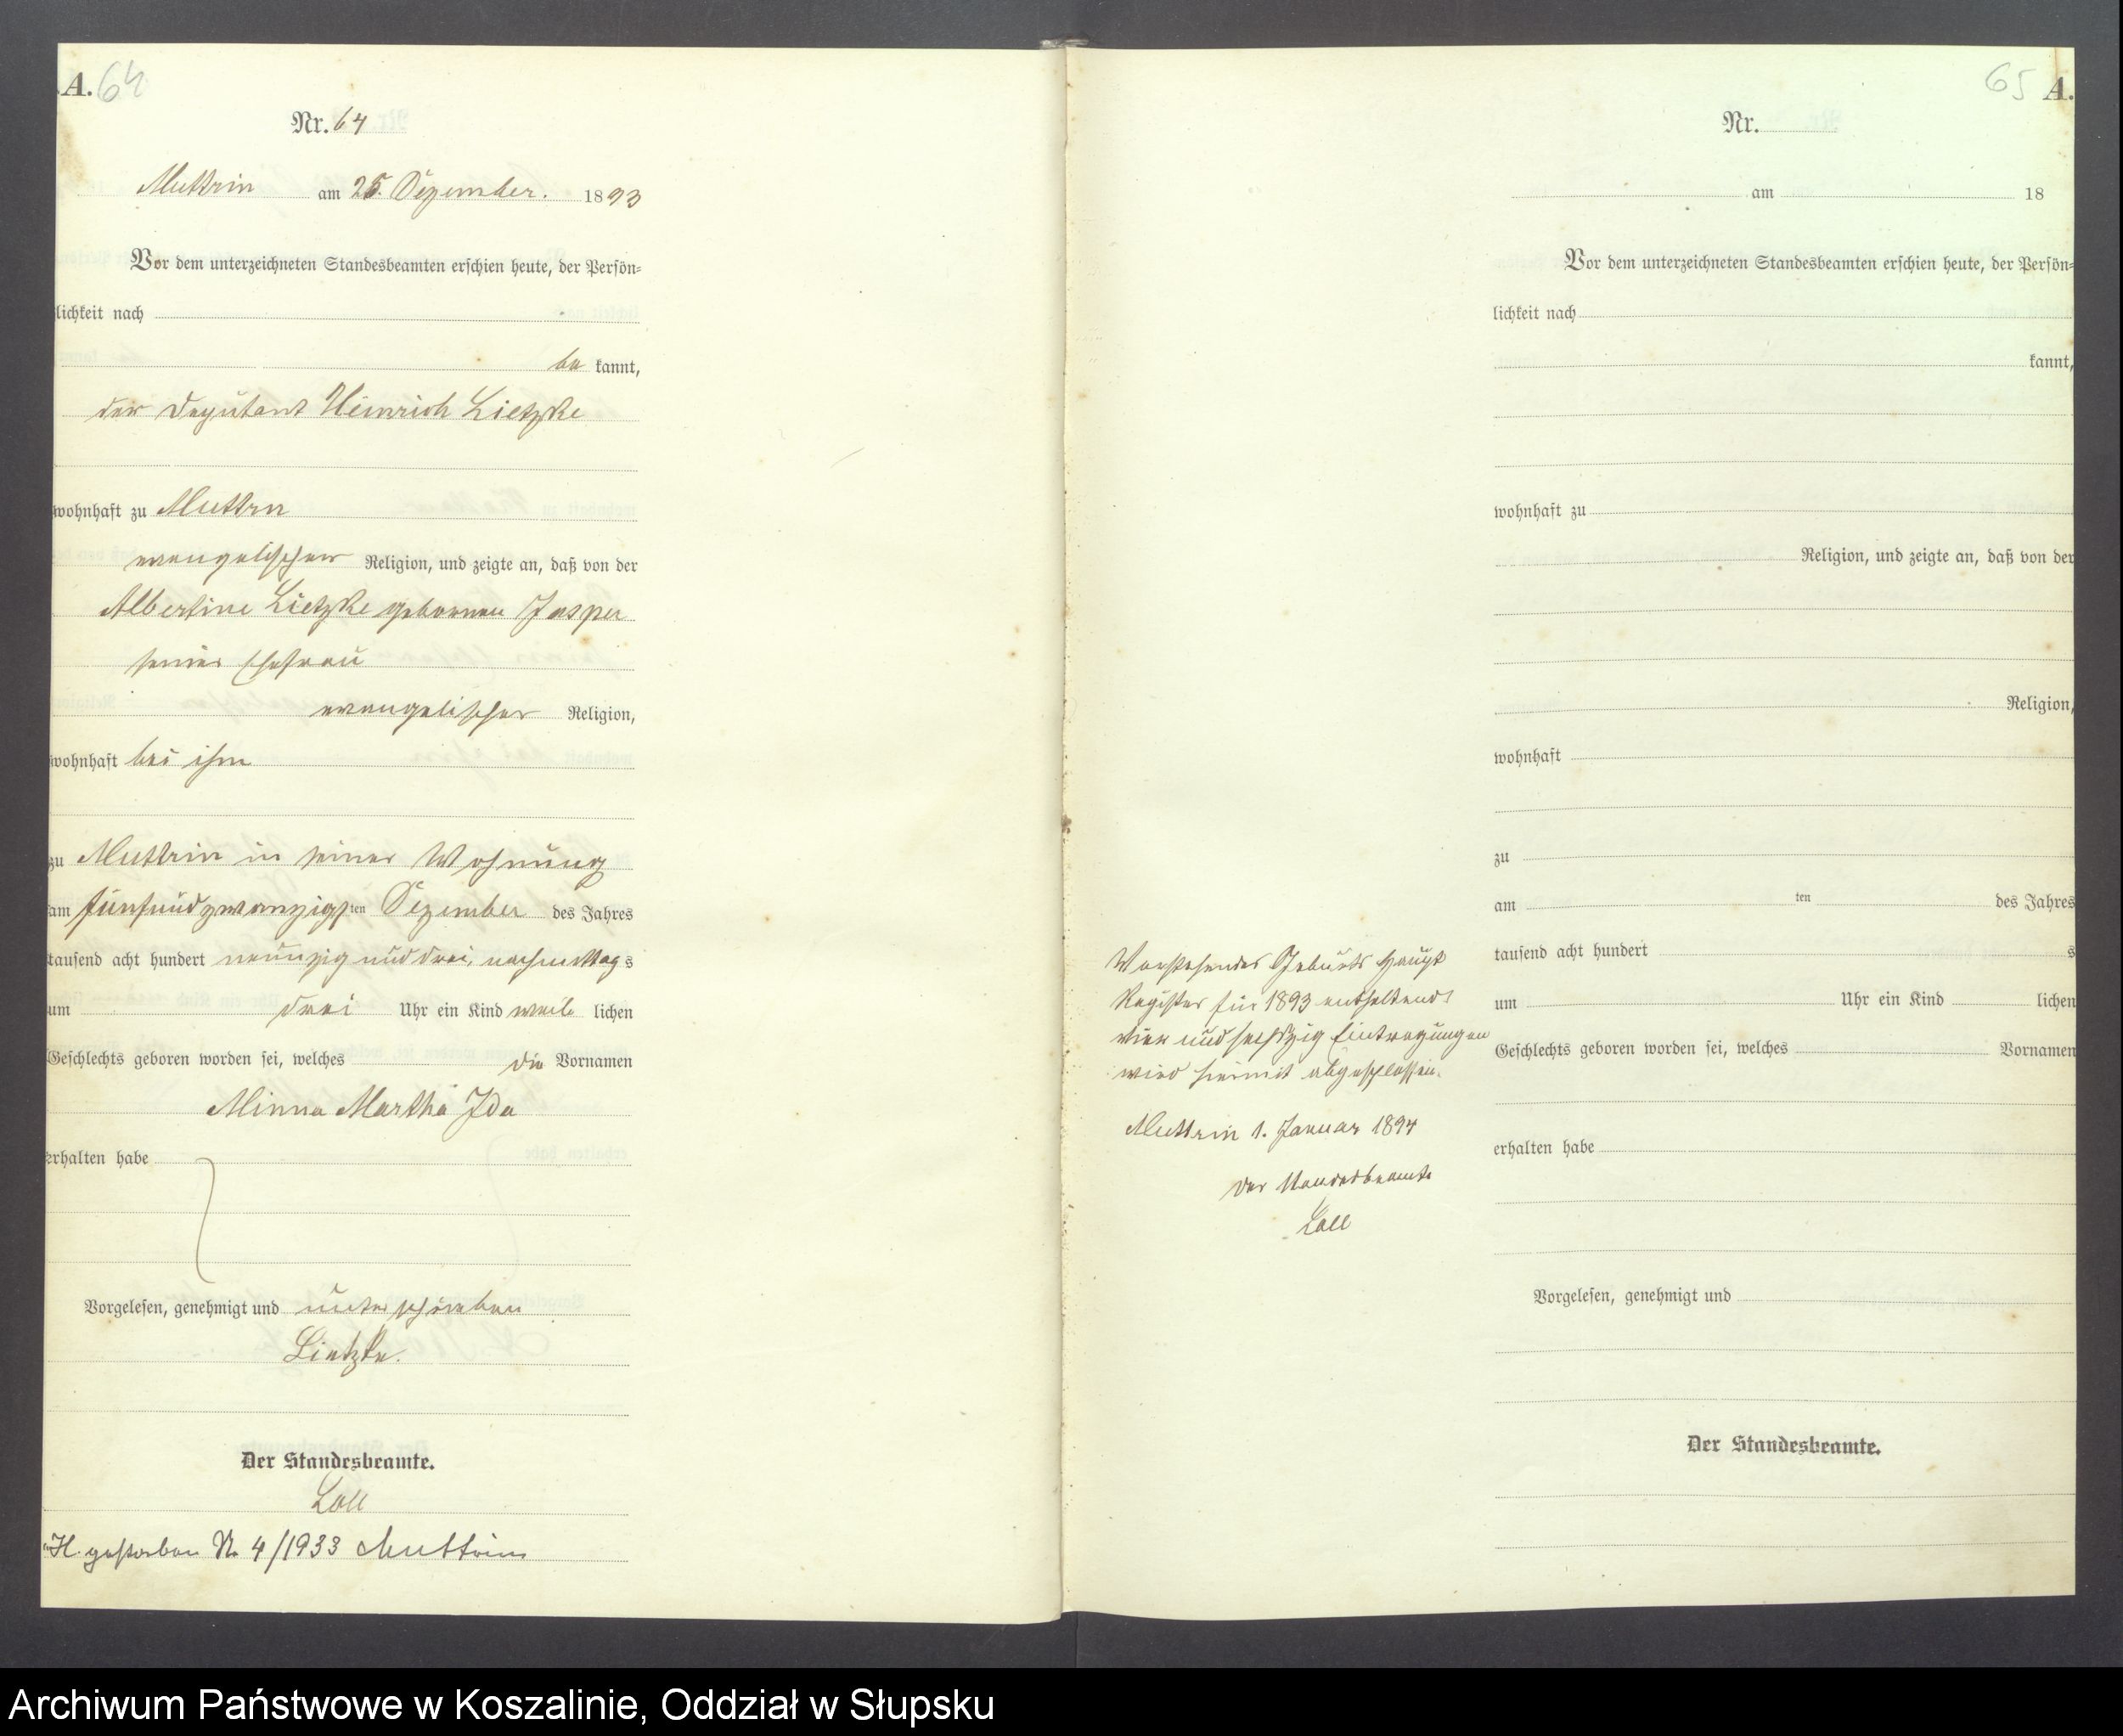 A. 64
Nr. 64
Muttrin am 25. Dezember. 1893
Vor dem unterzeichneten Standesbeamten erschien heute, der Persön=
lichkeit nach
be kannt,
der Deputant Heinrich Lietzke
wohnhaft zu Muttrn
evangelischer Religion, und zeigte an, daß von der
Albertine Lietzke gebornen Jasper
seiner Ehefrau
evangelischer Religion,
wohnhaft bei ihm
zu Muttrin in seiner Wohnung
am fünfundzwanzigsten Dezember des Jahres
tausend acht hundert neunzig und drei, nachmittags
um drei Uhr ein Kind weib lichen
Geschlechts geboren worden sei, welches die Vornamen
Minna Martha Ida
erhalten habe
Vorgelesen, genehmigt und unterschrieben
Lietzke.
Der Standesbeamte.
Loll
gestorben Nr 4/1933 Muttrin
65 A.
Nr.
am 18
Vor dem unterzeichneten Standesbeamten erschien heute, der Persön=
lichkeit nach
kannt,
wohnhaft zu
Religion, und zeigte an, daß von der
Religion,
wohnhaft
zu
am ten des Jahres
tausend acht hundert s
um Uhr ein Kind lichen
Geschlechts geboren worden sei, welches Vornamen
erhalten habe
Vorgelesen, genehmigt und
Der Standesbeamte.
Vorstehendes Geburts Haupt
Register für 1893 enthaltend
vier und sechszig Eintragungen
wird hiermit abgeschlossen.
Muttrin 1. Januar 1894
Der Standesbeamte
Loll
Archiwum Państwowe w Koszalinie, Oddział w Słupsku